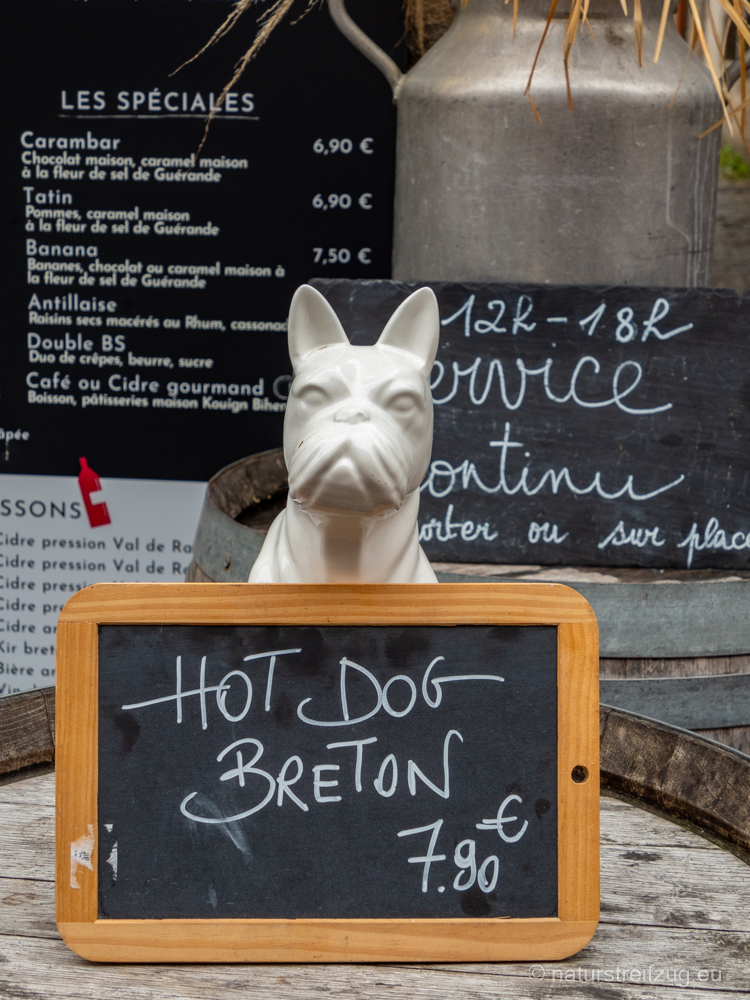 LES SPÉCIALES
Carambar 6,90 €
Chocolat maison, caramel maison
à la fleur de sel de Guérande
Tatin 6,90 €
Pommes, caramel maison
à la fleur de sel de Guérande
Banana 7,50 €
Bananes, chocolat ou caramel maison à
la fleur de sel de Guérande
Antillaise
Raisins secs macérés au Rhum, cassonad
Double BS
Duo de crêpes, beurre, sucre
Café ou Cidre gourmand
Boisson, pâtisseries maison Kouign Biher
âpée
SSONS
Cidre pression Val de Ra
Cidre pression Val de Re
Cidre pressi
Cidre pre
Cidre ar
Kir bret
Bière ar
Vin
12h-18h
ervice
continu
orter ou sur place
HOT DOG
BRETON
7.90 €
© naturstreifzug.eu